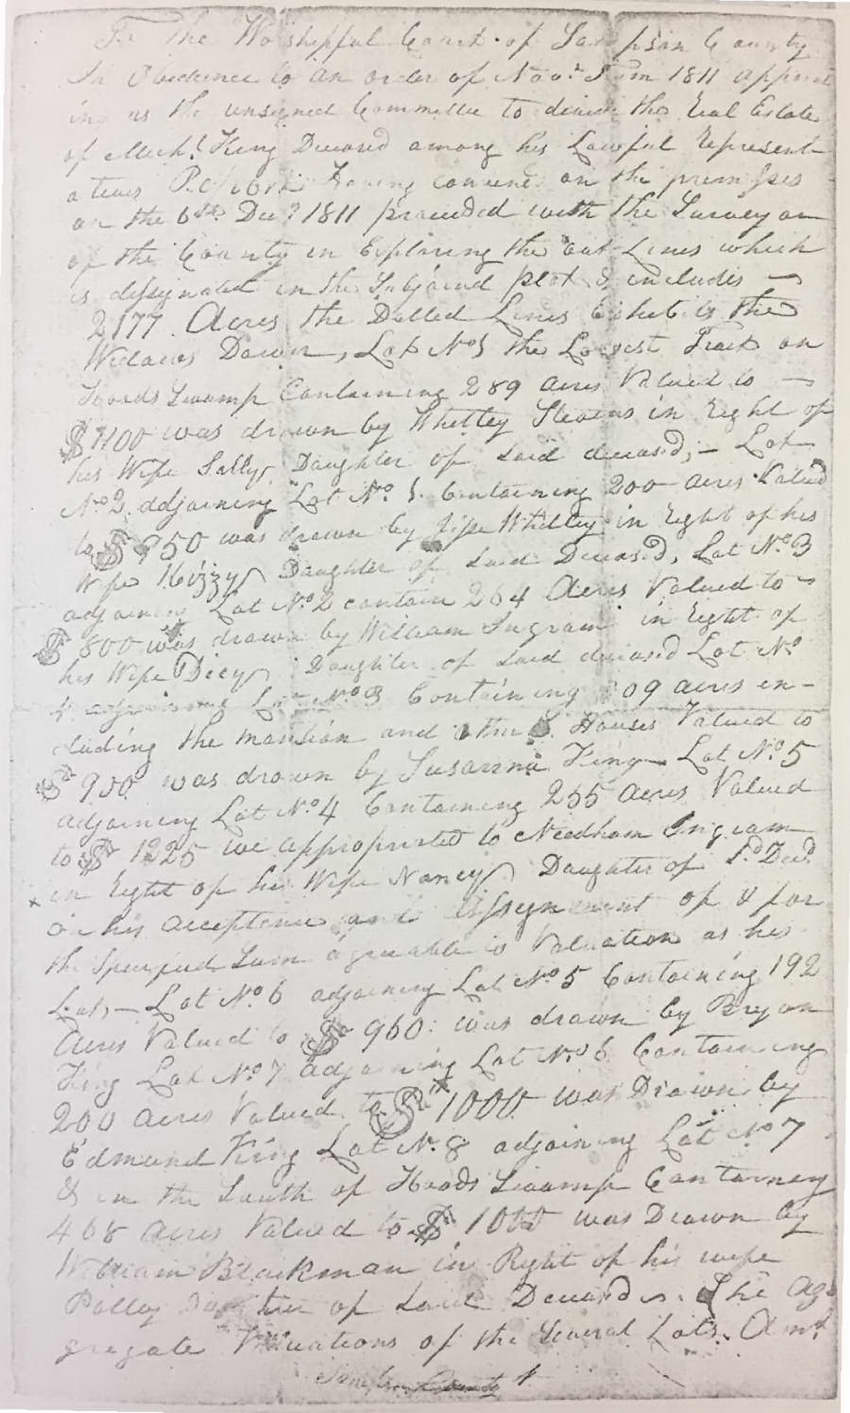 To The Worshipful Court of Sampson County
In Obedience to an order of Novr. Term 1811 appoint
ing us the unsigned Committee to divide the Real Estate
of Michl. King Deceasd among his Lawful Represent
atives Having convened on the premises
on the 6th Decr. 1811 proceeded with the Surveyor
of the County in Exploring the out Lines which
is designated in the Subjoined plot & includes
2177 Acres the Dotted Lines Exhibits the
Widows Dower, Lot No 1 the Lowest Tract on
Hoods Swamp Containing 289 acres Valued to
$1100 was drawn by Whitley Stevens in Right of
his Wife Sally Daughter of said deceasd, - Lot
No 2 adjoining Lot No. 1. Containing 200 acres Valued
to $ 950 was drawn by Whitley in Right of his
Wife Kizzy Daughter of said Deceasd, Lot No. 3
adjoining Lot No 2 contain 264 Acres Valued to
$ 800 was drawn by William Ingram in Right of
his Wife Dicey Daughter of said deceasd Lot No
4 adjoining Lot No. 3 Containing 09 acres in-
cluding the mansion and other Houses Valued to
$ 900 was drawn by Susanna King Lot No. 5
adjoining Lot No 4 Containing 255 acres Valued
to $ 1225 we appropriated to Needham Ingram
in Right of his Wife Nancy Daughter of Sd. Decd.
on his acceptance and Assignment of
the Specified Sum agreeable to Valuation as his
Lot, - Lot No. 6 adjoining Lot No 5 Containing 192
Acres Valued to $ 960. was drawn by Bryan
King Lot No. 7 adjoining Lot No. 6 Containing
200 acres Valued to $ 1000 was Drawn by
Edmund King Lot No. 8 adjoining Lot No 7
& in the South of Hoods Swamp Containing
468 acres Valued to $ 1000 was Drawn by
William Blackman in Right of his wife
Polley Daughter of said Deceasd. The Ag-
gregate Valuations of the several Lots. Amt.
Sampson County